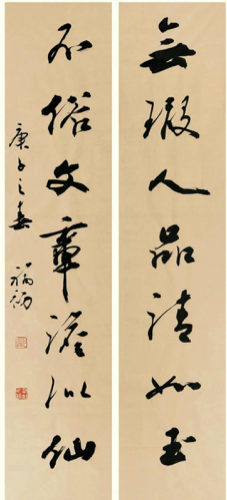 無瑕人品清如玉
不俗文章淡似仙
庚子之春
福衍